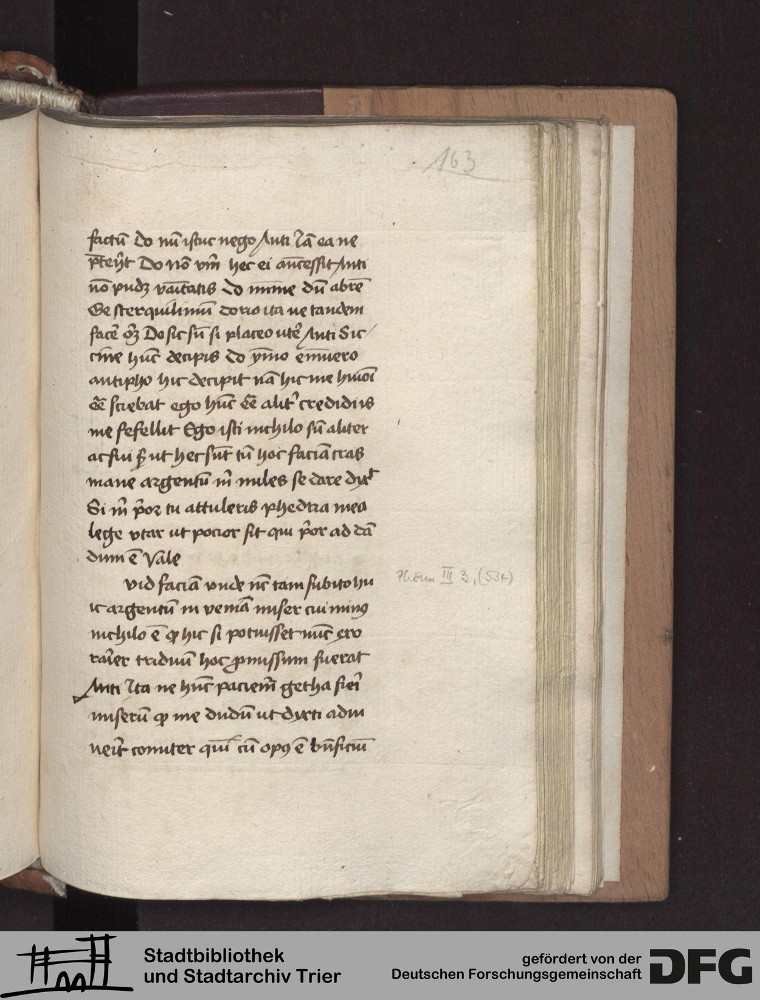 163
factū do nū istuc nego Anti Iā ea ne
p̄teryt Do nō vm̄ hec ei an̄cessit Anti
nō pudꝫ vāitatis do mīme dū ob rē
Ge sterquiliniū dorio ita ne tandem
facē oꝫ Do sic sū si placeo utē Anti Sic
cine hūc decipis do ymo enīuero
antipho hic decipit nā hic me hui9mōi
eē sciebat ego hūc eē alit̄ credidi is
me fefellit Ego isti nichilo sū aliter
ac fui sꝫ ut hec sūt tn̄ hoc faciā cras
mane argentū m̄ miles se dare dyxit
Si m̄ p̄or tu attuleris phedria mea
lege vtar ut pocior sit qui p̄or ad dā
dum ē Vale
vid faciā vnde nc̄ tam subito hu
ic argentū in veniā miser cui min9
nichilo ē qꝫ hic si potuisset nūc exo
rarier triduū hoc ꝓmissum fuerat
Anti Ita ne hūc paciem̄ getha fiēi
miserū qꝫ me dudū ut dyxti adiu
uerit comiter quī cū op9 ē bn̄ficiū
Phorm III 3, (534)
Stadtbibliothek
und Stadtarchiv Trier
gefördert von der
Deutschen Forschungsgemeinschaft
DFG